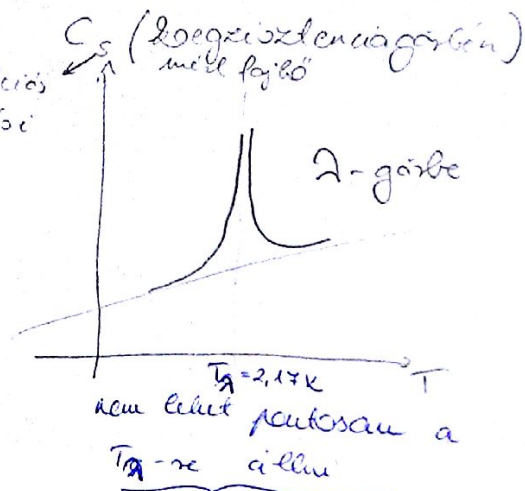 Cₛ (koegzisztenciagörbén)
mért fajhő
ciós
λ-görbe
T_λ=2,17K
T
nem lehet pontosan a
T_λ-ra állni